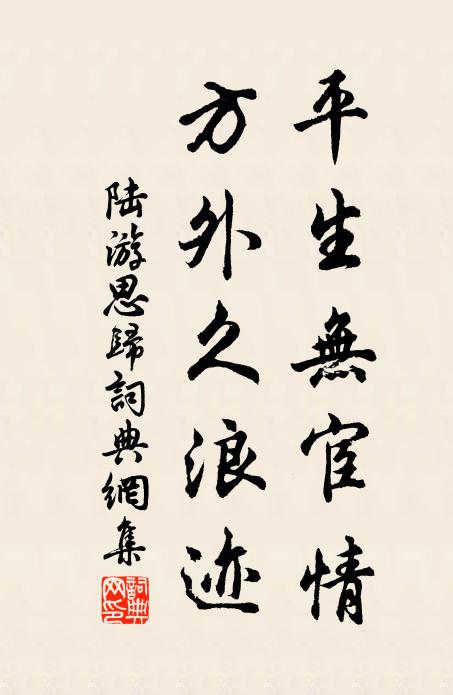 平生無宦情
方外久浪迹
陆游思歸詞典網集
詞典网印